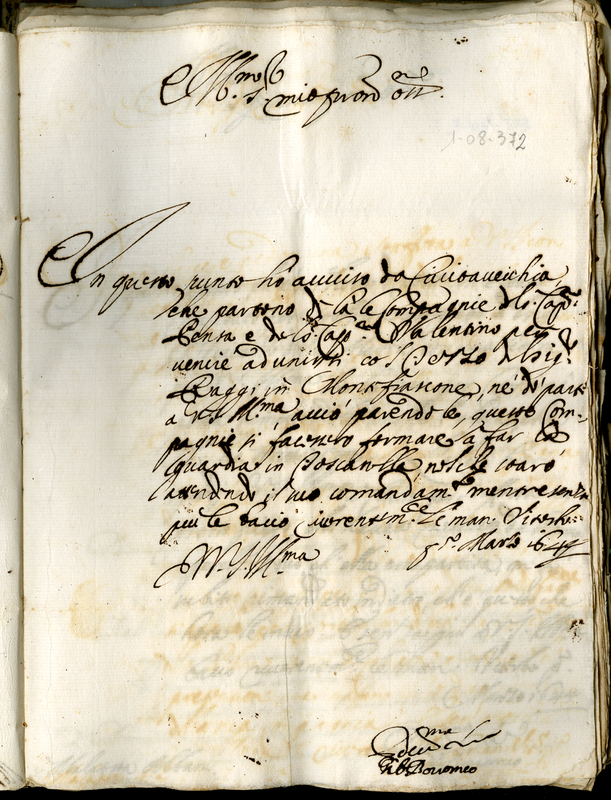 Ill.mo S.r mio Pron Oss.
1-08-372
In questo punto hò auuiso da Ciuitauecchia
che partono di là le Compagnie del s. Cap.
Pensa e del s. Cap. Valentino per
uenire ad unirsi col Terzo del Sig.r
Raggi in Montefiascone, ne dò parte
a V.S. Ill.ma acciò parendole, queste Com-
pagnie si facessero fermare à far la
guardia in Toscanella nel che starò
attendendo il suo comandam.to mentre
per le bacio le man. Viterbo
8 Marzo 1644
V.S. Ill.ma
Borromeo